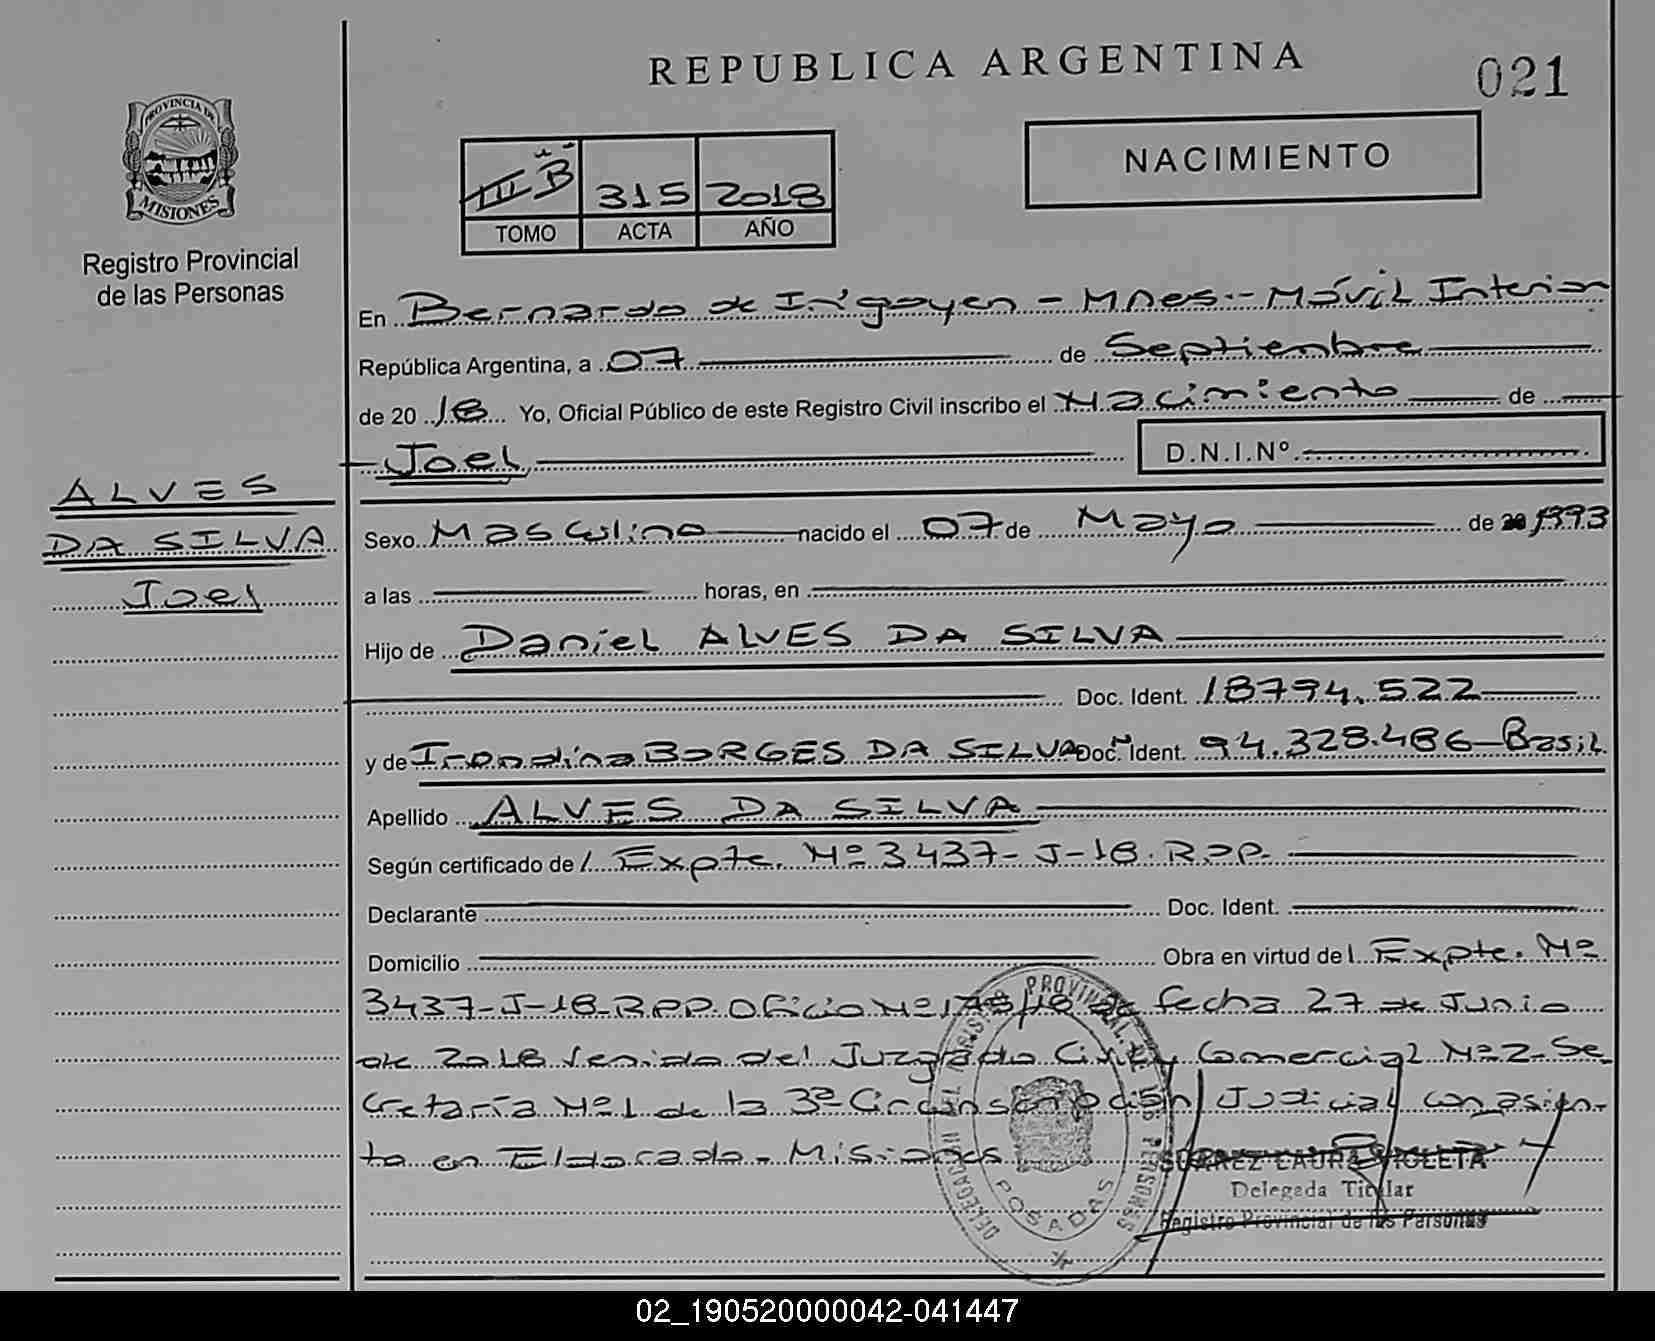 REPUBLICA ARGENTINA
021
PROVINCIA DE
MISIONES
Registro Provincial
de las Personas
NACIMIENTO
III "B" 315 2018
TOMO ACTA AÑO
En Bernardo de Irigoyen - Mnes.- Móvil Interior
República Argentina, a 07 de Septiembre
de 20 18 Yo, Oficial Público de este Registro Civil inscribo el Nacimiento de
Joel
D.N.I.Nº
ALVES
DA SILVA
Joel
Sexo Masculino nacido el 07 de Mayo de 1993
a las horas, en
Hijo de Daniel ALVES DA SILVA
Doc. Ident. 18794.522
y de Irondina BORGES DA SILVA Doc. Ident. 94.328.486-Brasil
Apellido ALVES DA SILVA
Según certificado de Expte. Nº 3437-J-18.RPP.
Declarante Doc. Ident.
Domicilio Obra en virtud del Expte. Nº
3437-J-18-RPP. Oficio Nº /18 de fecha 27 de Junio
de 2018 venido del Juzgado Civil y Comercial Nº 2-Se-
cretaría Nº 1 de la 3ª Circunscripción Judicial con asien-
to en Eldorado - Misiones
DELEGACION DEL REGISTRO PROVINCIAL DE LAS PERSONAS
POSADAS
SUAREZ LAURA VIOLETA
Delegada Titular
Registro Provincial de las Personas
02_190520000042-041447